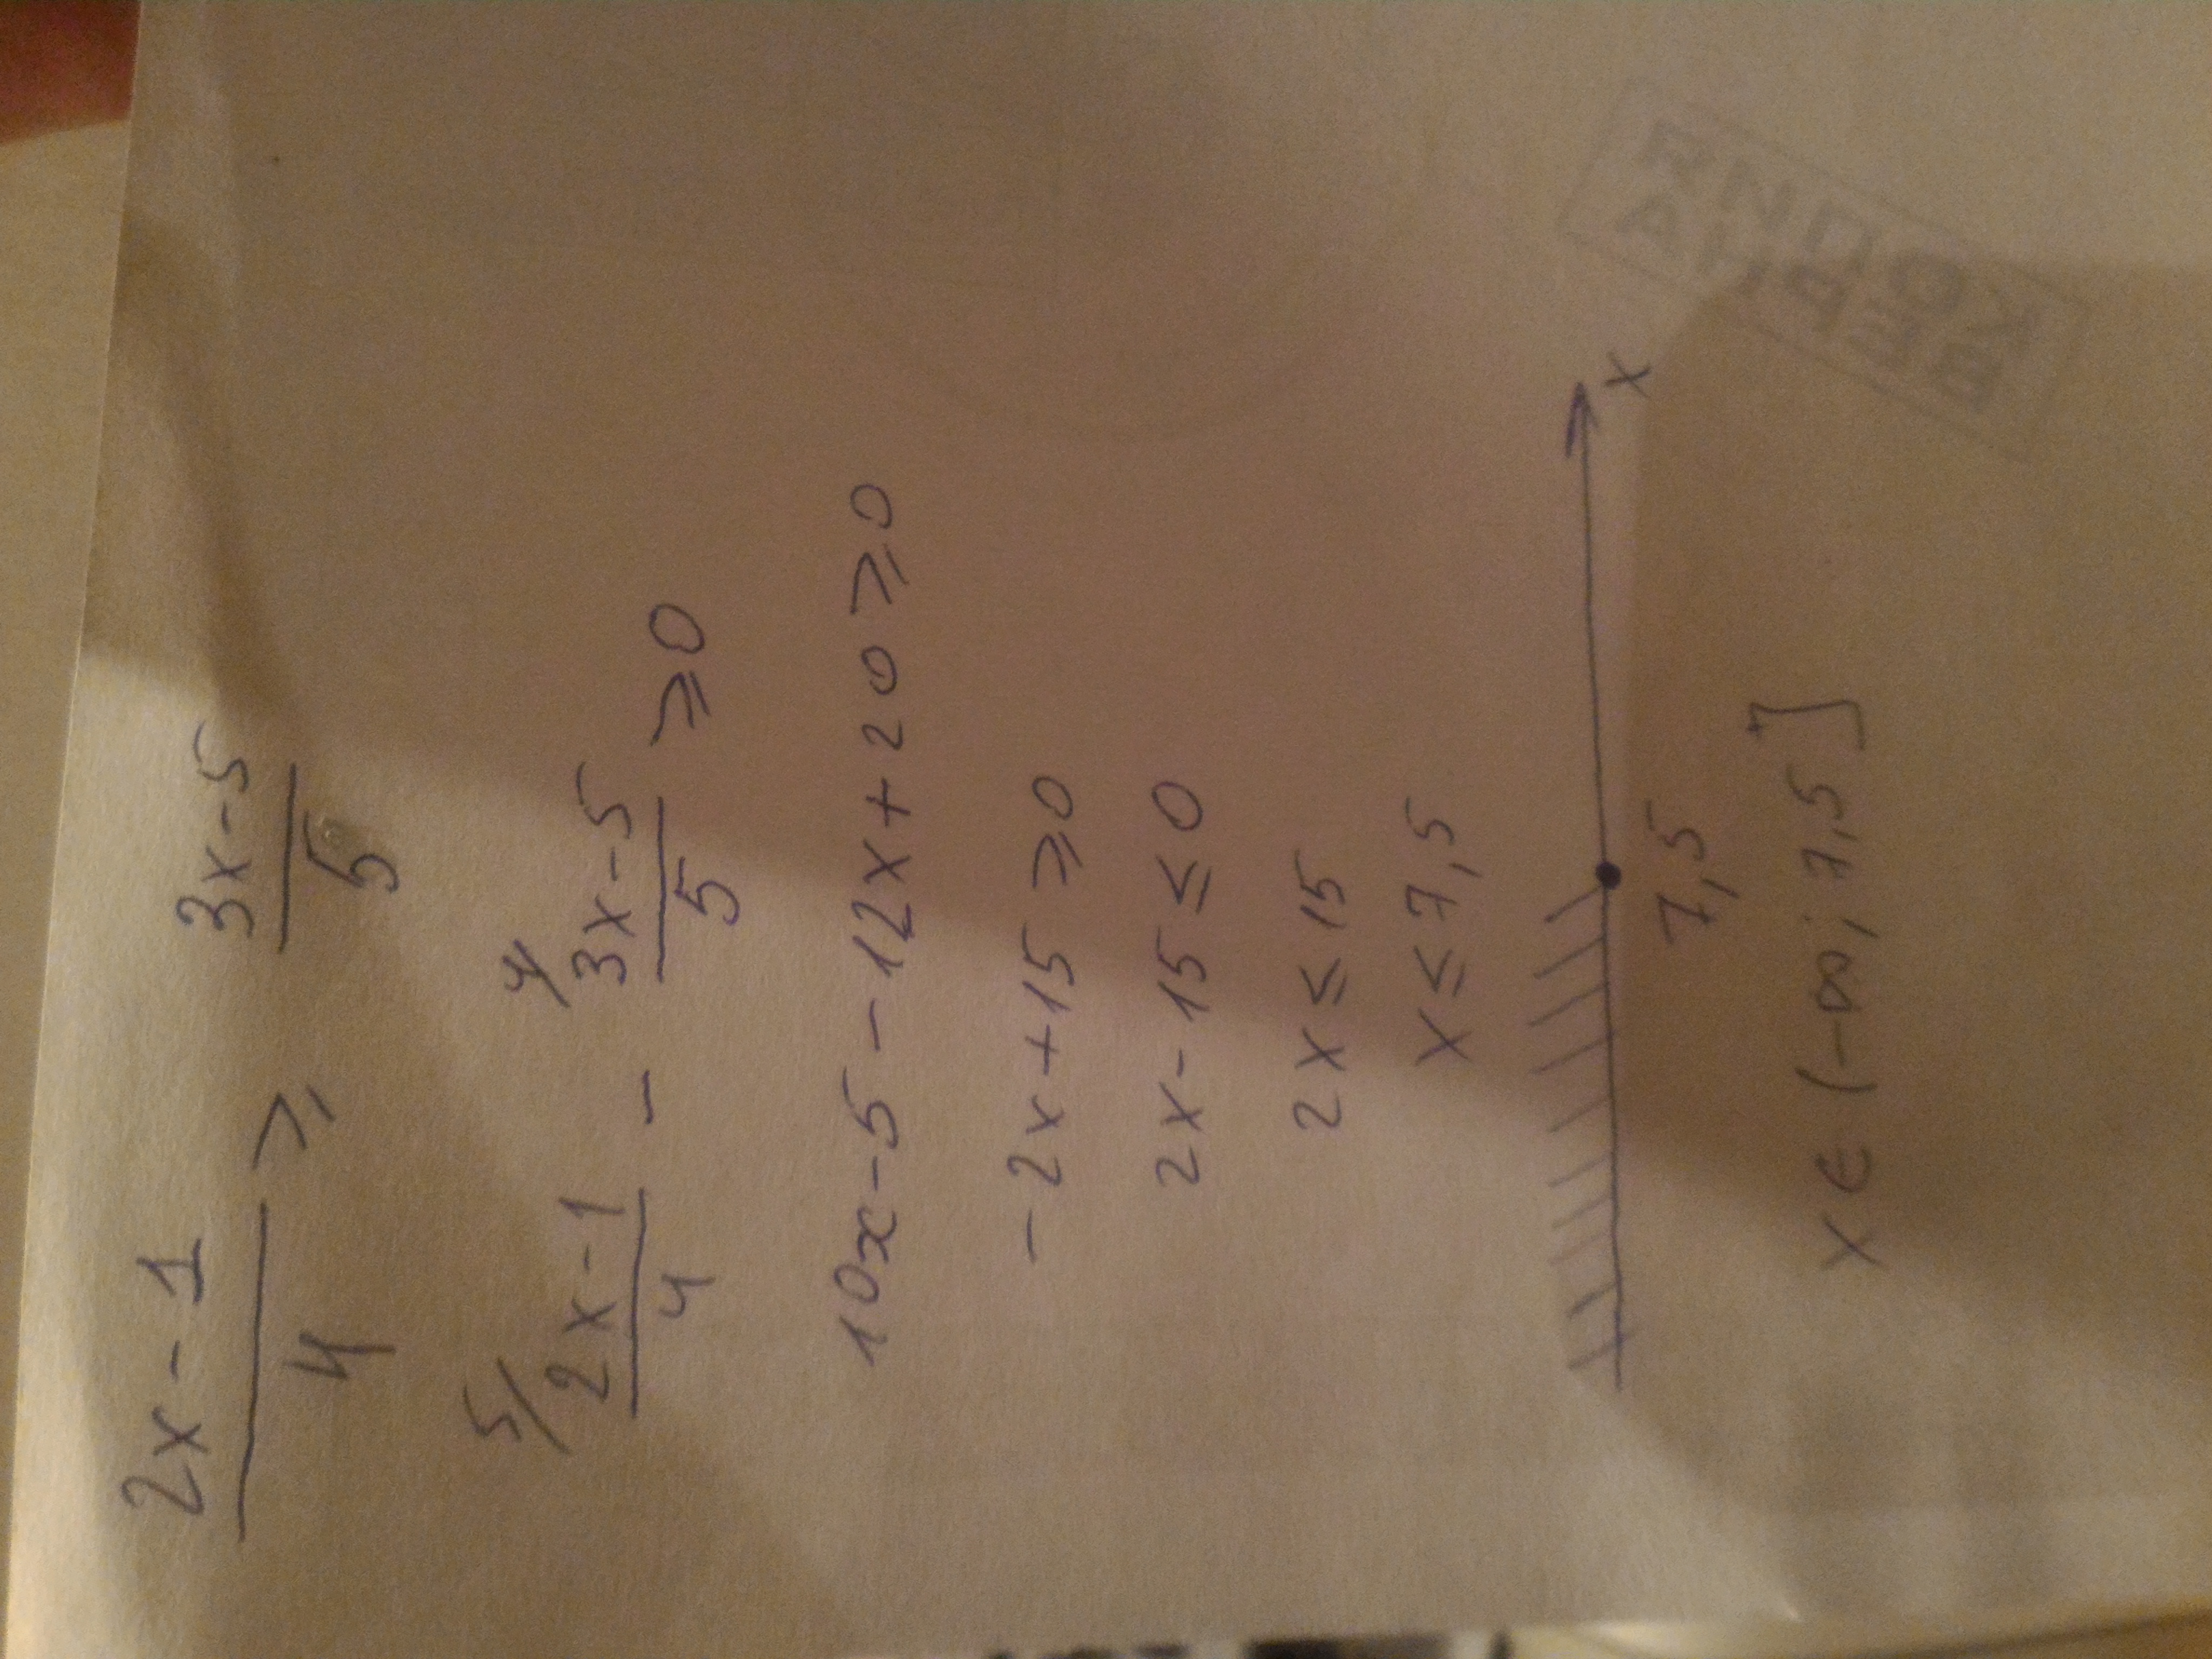 2x - 1 / 4 ⩾ 3x - 5 / 5
5/ 2x - 1 / 4 - 4/ 3x - 5 / 5 ⩾ 0
10x - 5 - 12x + 20 ⩾ 0
- 2x + 15 ⩾ 0
2x - 15 ≤ 0
2x ≤ 15
x ≤ 7,5
x
7,5
x ∈ (-∞; 7,5]